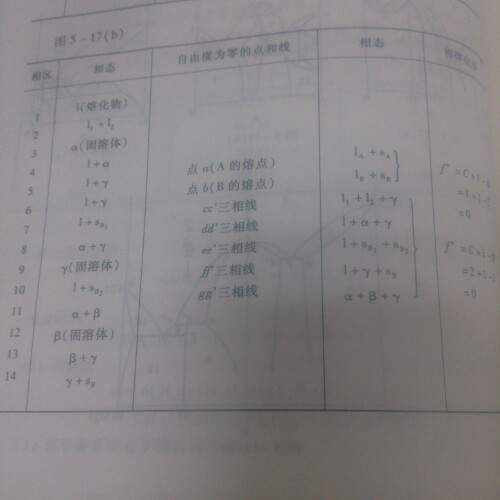 图 5-17(b)
相区 相态 自由度为零的点和线 相态
1 l(熔化物)
2 l₁+l₂
3 α(固溶体)
4 l+α 点 a(A 的熔点) l_A+s_A
5 l+γ 点 b(B 的熔点) l_B+s_B
6 l+γ cc′三相线 l₁+l₂+γ
7 l+s_B₁ dd′三相线 l+α+γ
8 α+γ ee′三相线 l+s_B₁+s_B₂
9 γ(固溶体) ff′三相线 l+γ+s_B
10 l+s_B₂ gg′三相线 α+β+γ
11 α+β
12 β(固溶体)
13 β+γ
14 γ+s_B
=1+1-
=0
=2+1-
=0